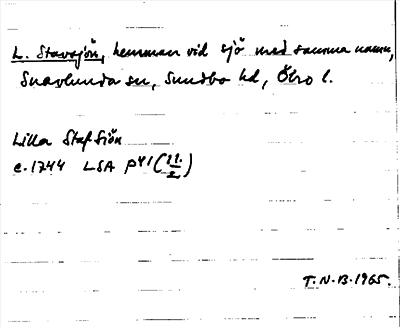 L. Stavsjön, hemman vid sjö med samma namn,
Snavlunda sn, Sundbo hd, Öbro l.
Lilla Staf Siön
c. 1744 LSA P41 (11/2)
T.N.B. 1965.